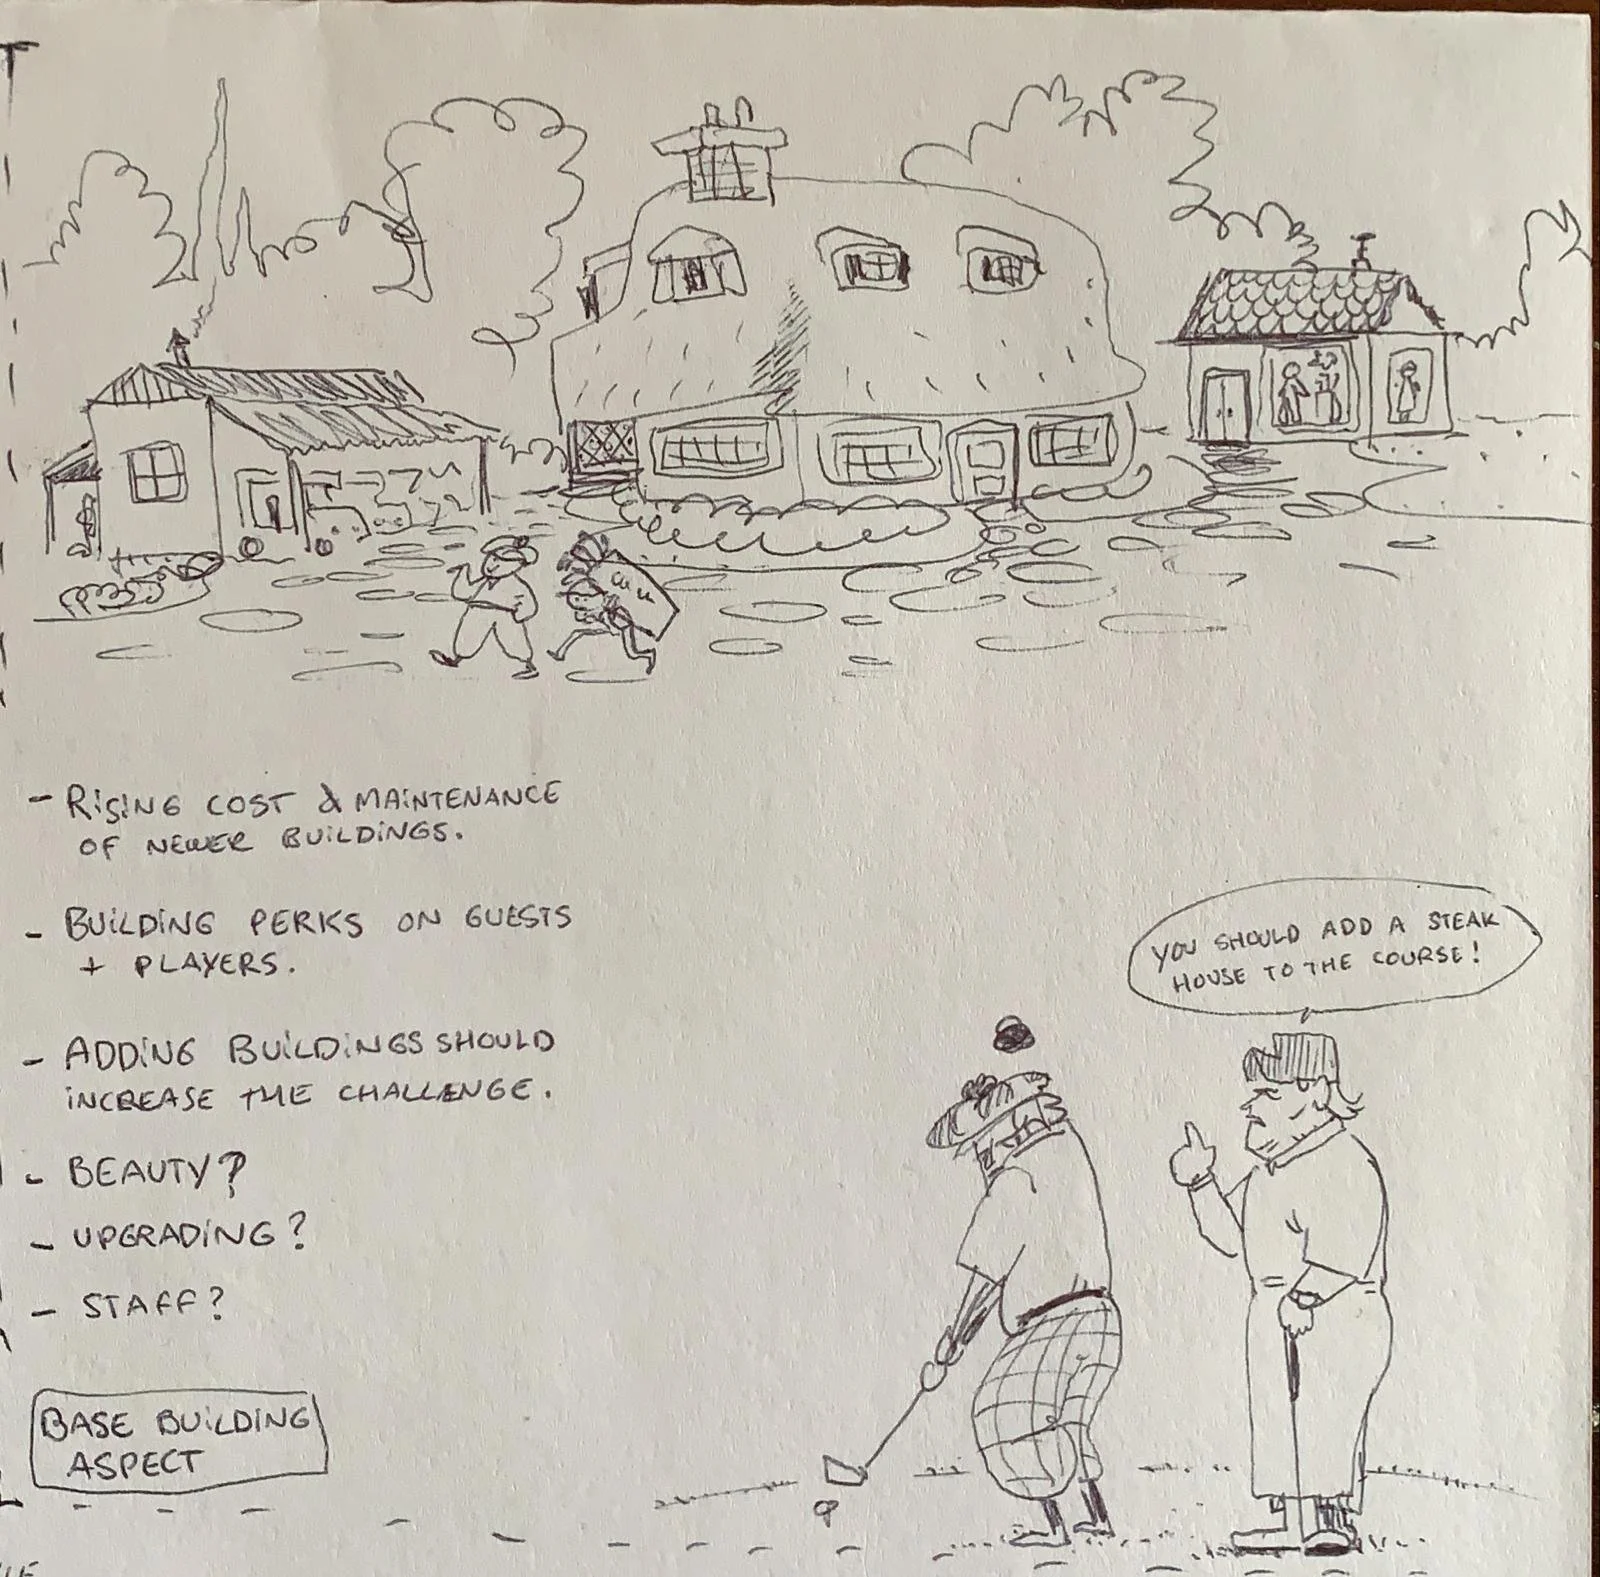 - RISING COST & MAINTENANCE
OF NEWER BUILDINGS.
- BUILDING PERKS ON GUESTS
+ PLAYERS.
- ADDING BUILDINGS SHOULD
INCREASE THE CHALLENGE.
- BEAUTY?
- UPGRADING?
- STAFF?
BASE BUILDING
ASPECT
YOU SHOULD ADD A STEAK
HOUSE TO THE COURSE!